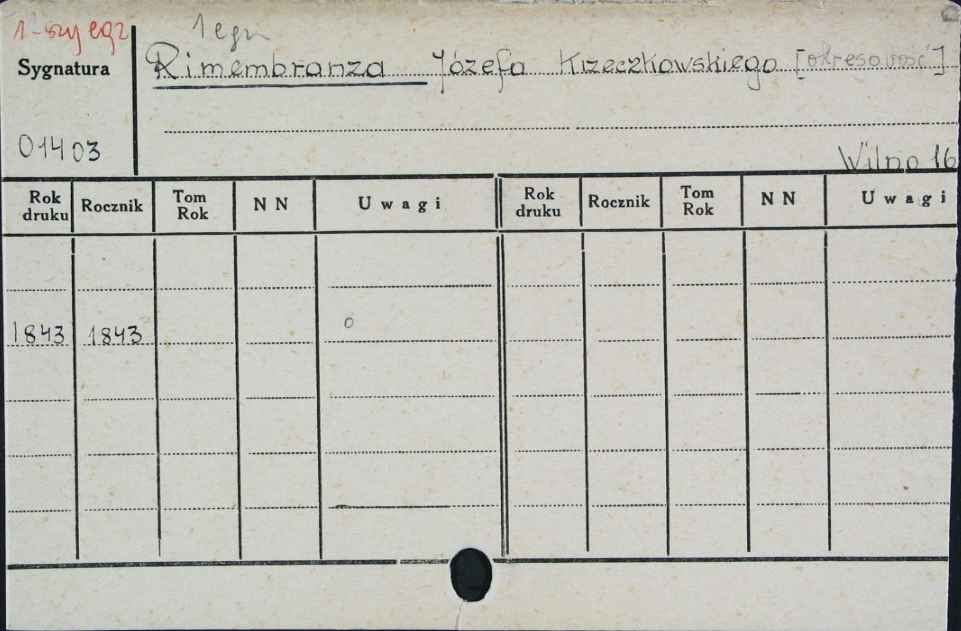 1-szy egz
1 egz
Sygnatura
Rimembranza Józefa Krzeczkowskiego [okresowość]
01403
Wilno 16
Rok druku Rocznik Tom Rok N N Uwagi Rok druku Rocznik Tom Rok N N Uwagi
1843 1843 0